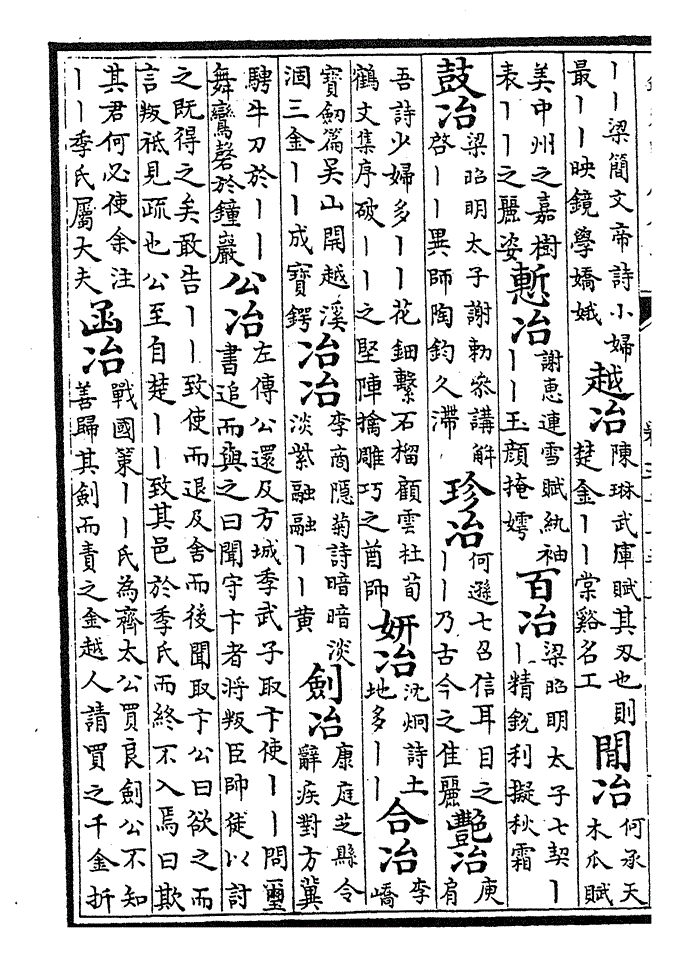 丨丨梁簡文帝詩小婦
最丨丨映鏡學嬌娥
越冶
陳琳武庫賦其刃也則
楚金丨丨棠谿名工
閒冶
何承天
木瓜賦
美中州之嘉樹
表丨丨之麗姿
慙冶
謝惠連雪賦紈袖
丨丨玉顏掩嫮
百冶
梁昭明太子七契丨
丨精銳利擬秋霜
鼓冶
梁昭明太子謝勑參講解
啓丨丨異師陶鈞久滯
珍冶
何遜七召信耳目之
丨丨乃古今之佳麗
豔冶
庾
肩
吾詩少婦多丨丨花鈿繫石榴顧雲杜荀
鶴文集序破丨丨之堅陣擒雕巧之酋帥
妍冶
沈炯詩土
地多丨丨
合冶
李
嶠
寶劒篇吳山開越溪
涸三金丨丨成寶鍔
冶冶
李商隱菊詩暗暗淡
淡紫融融丨丨黄
劍冶
康庭芝縣令
辭疾對方冀
騁牛刀於丨丨
舞鸞磬於鐘巖
公冶
左傳公還及方城季武子取卞使丨丨問璽
書追而與之曰聞守卞者將叛臣帥徒以討
之既得之矣敢告丨丨致使而退及舍而後聞取卞公曰欲之而
言叛祗見疏也公至自楚丨丨致其邑於季氏而終不入焉曰欺
其君何必使余注
丨丨季氏屬大夫
函冶
戰國策丨丨氏為齊太公買良劍公不知
善歸其劍而責之金越人請買之千金折